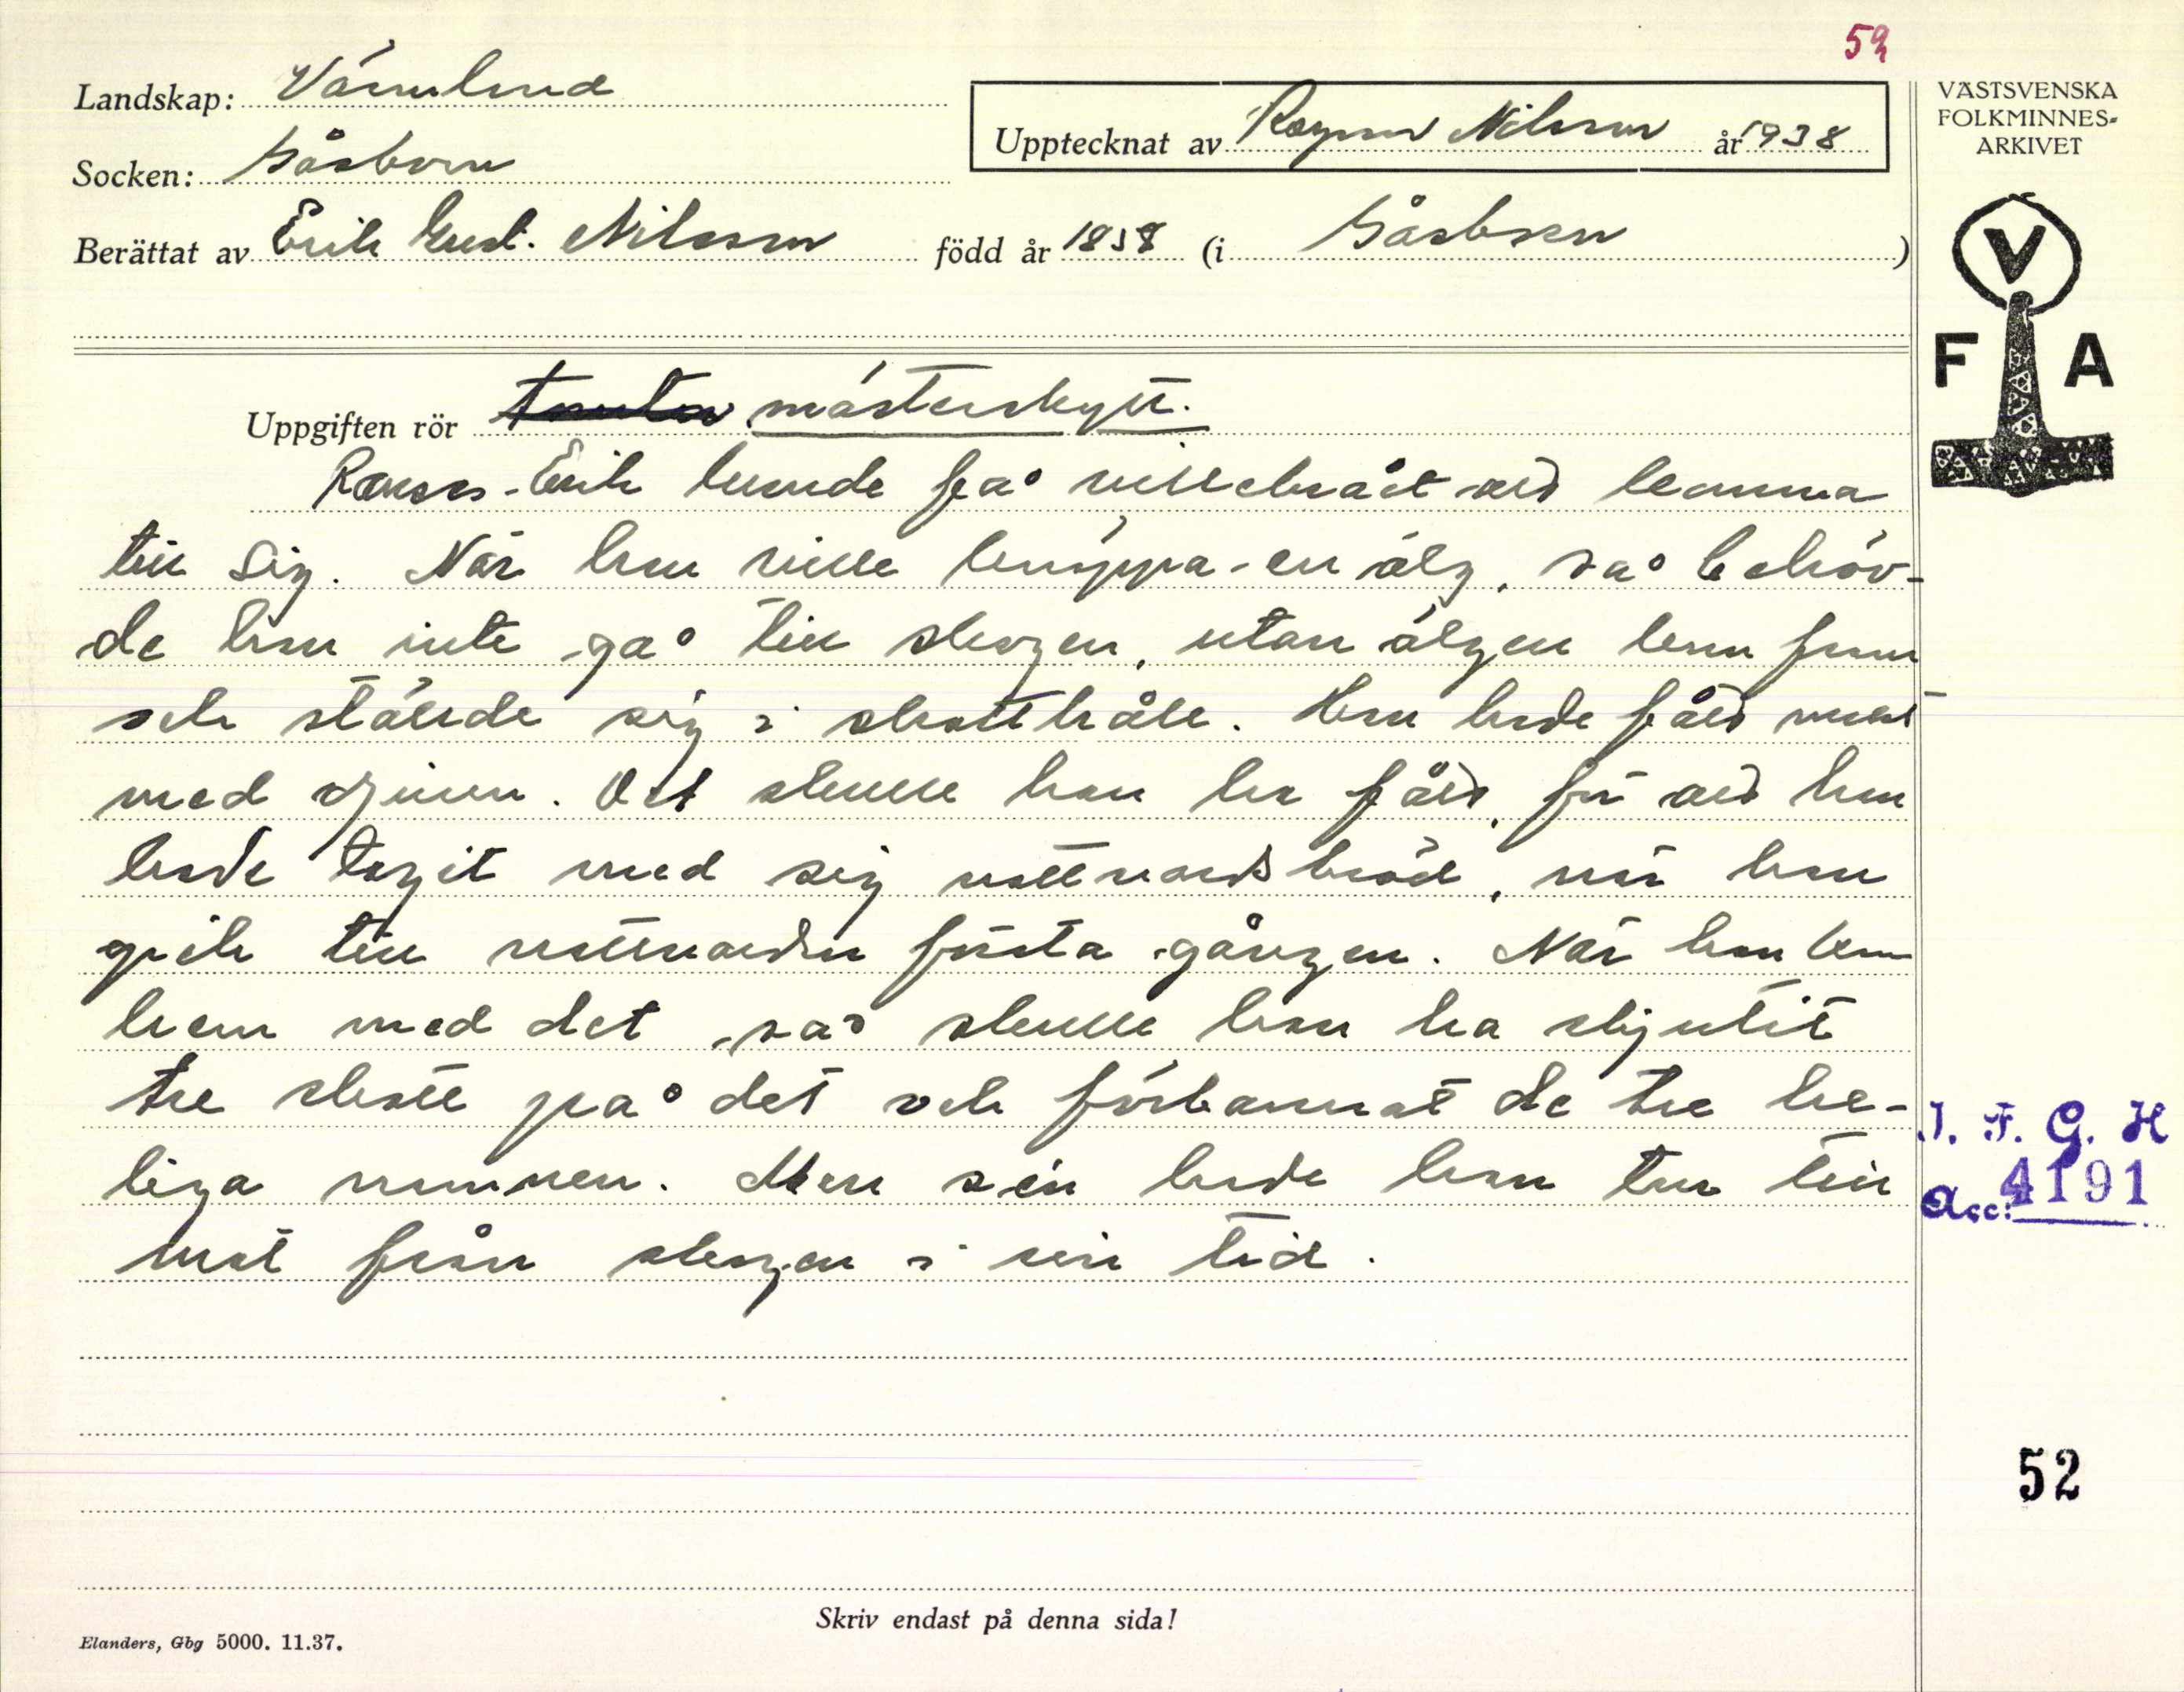 59
Landskap: Värmland
Upptecknat av Ragnar Nilsson år 1938
VÄSTSVENSKA
FOLKMINNES-
ARKIVET
Socken: Gåsborn
Berättat av Erik Gust. Nilsson född år 1858 (i Gåsborn)
V
F A
Uppgiften rör mästerskytt.
Erik kunde få villebråd att komma
till sig. När han ville knäppa en älg, så behöv-
de han inte gå till skogen, utan älgen kom fram
och ställde sig i skotthåll. Han hade fått makt
med djuren. Det skulle han ha fått för att han
hade tagit med sig nattvardsbröd, när han
gick till nattvarden första gången. När han kom
hem med det, så skulle han ha skjutit
tre skott på det och förbannat de tre he-
liga namnen. Men sen hade han tur till
mat från skogen i sin tid.
I. F. G. H
Acc: 4191
52
Skriv endast på denna sida!
Elanders, Gbg 5000. 11.37.